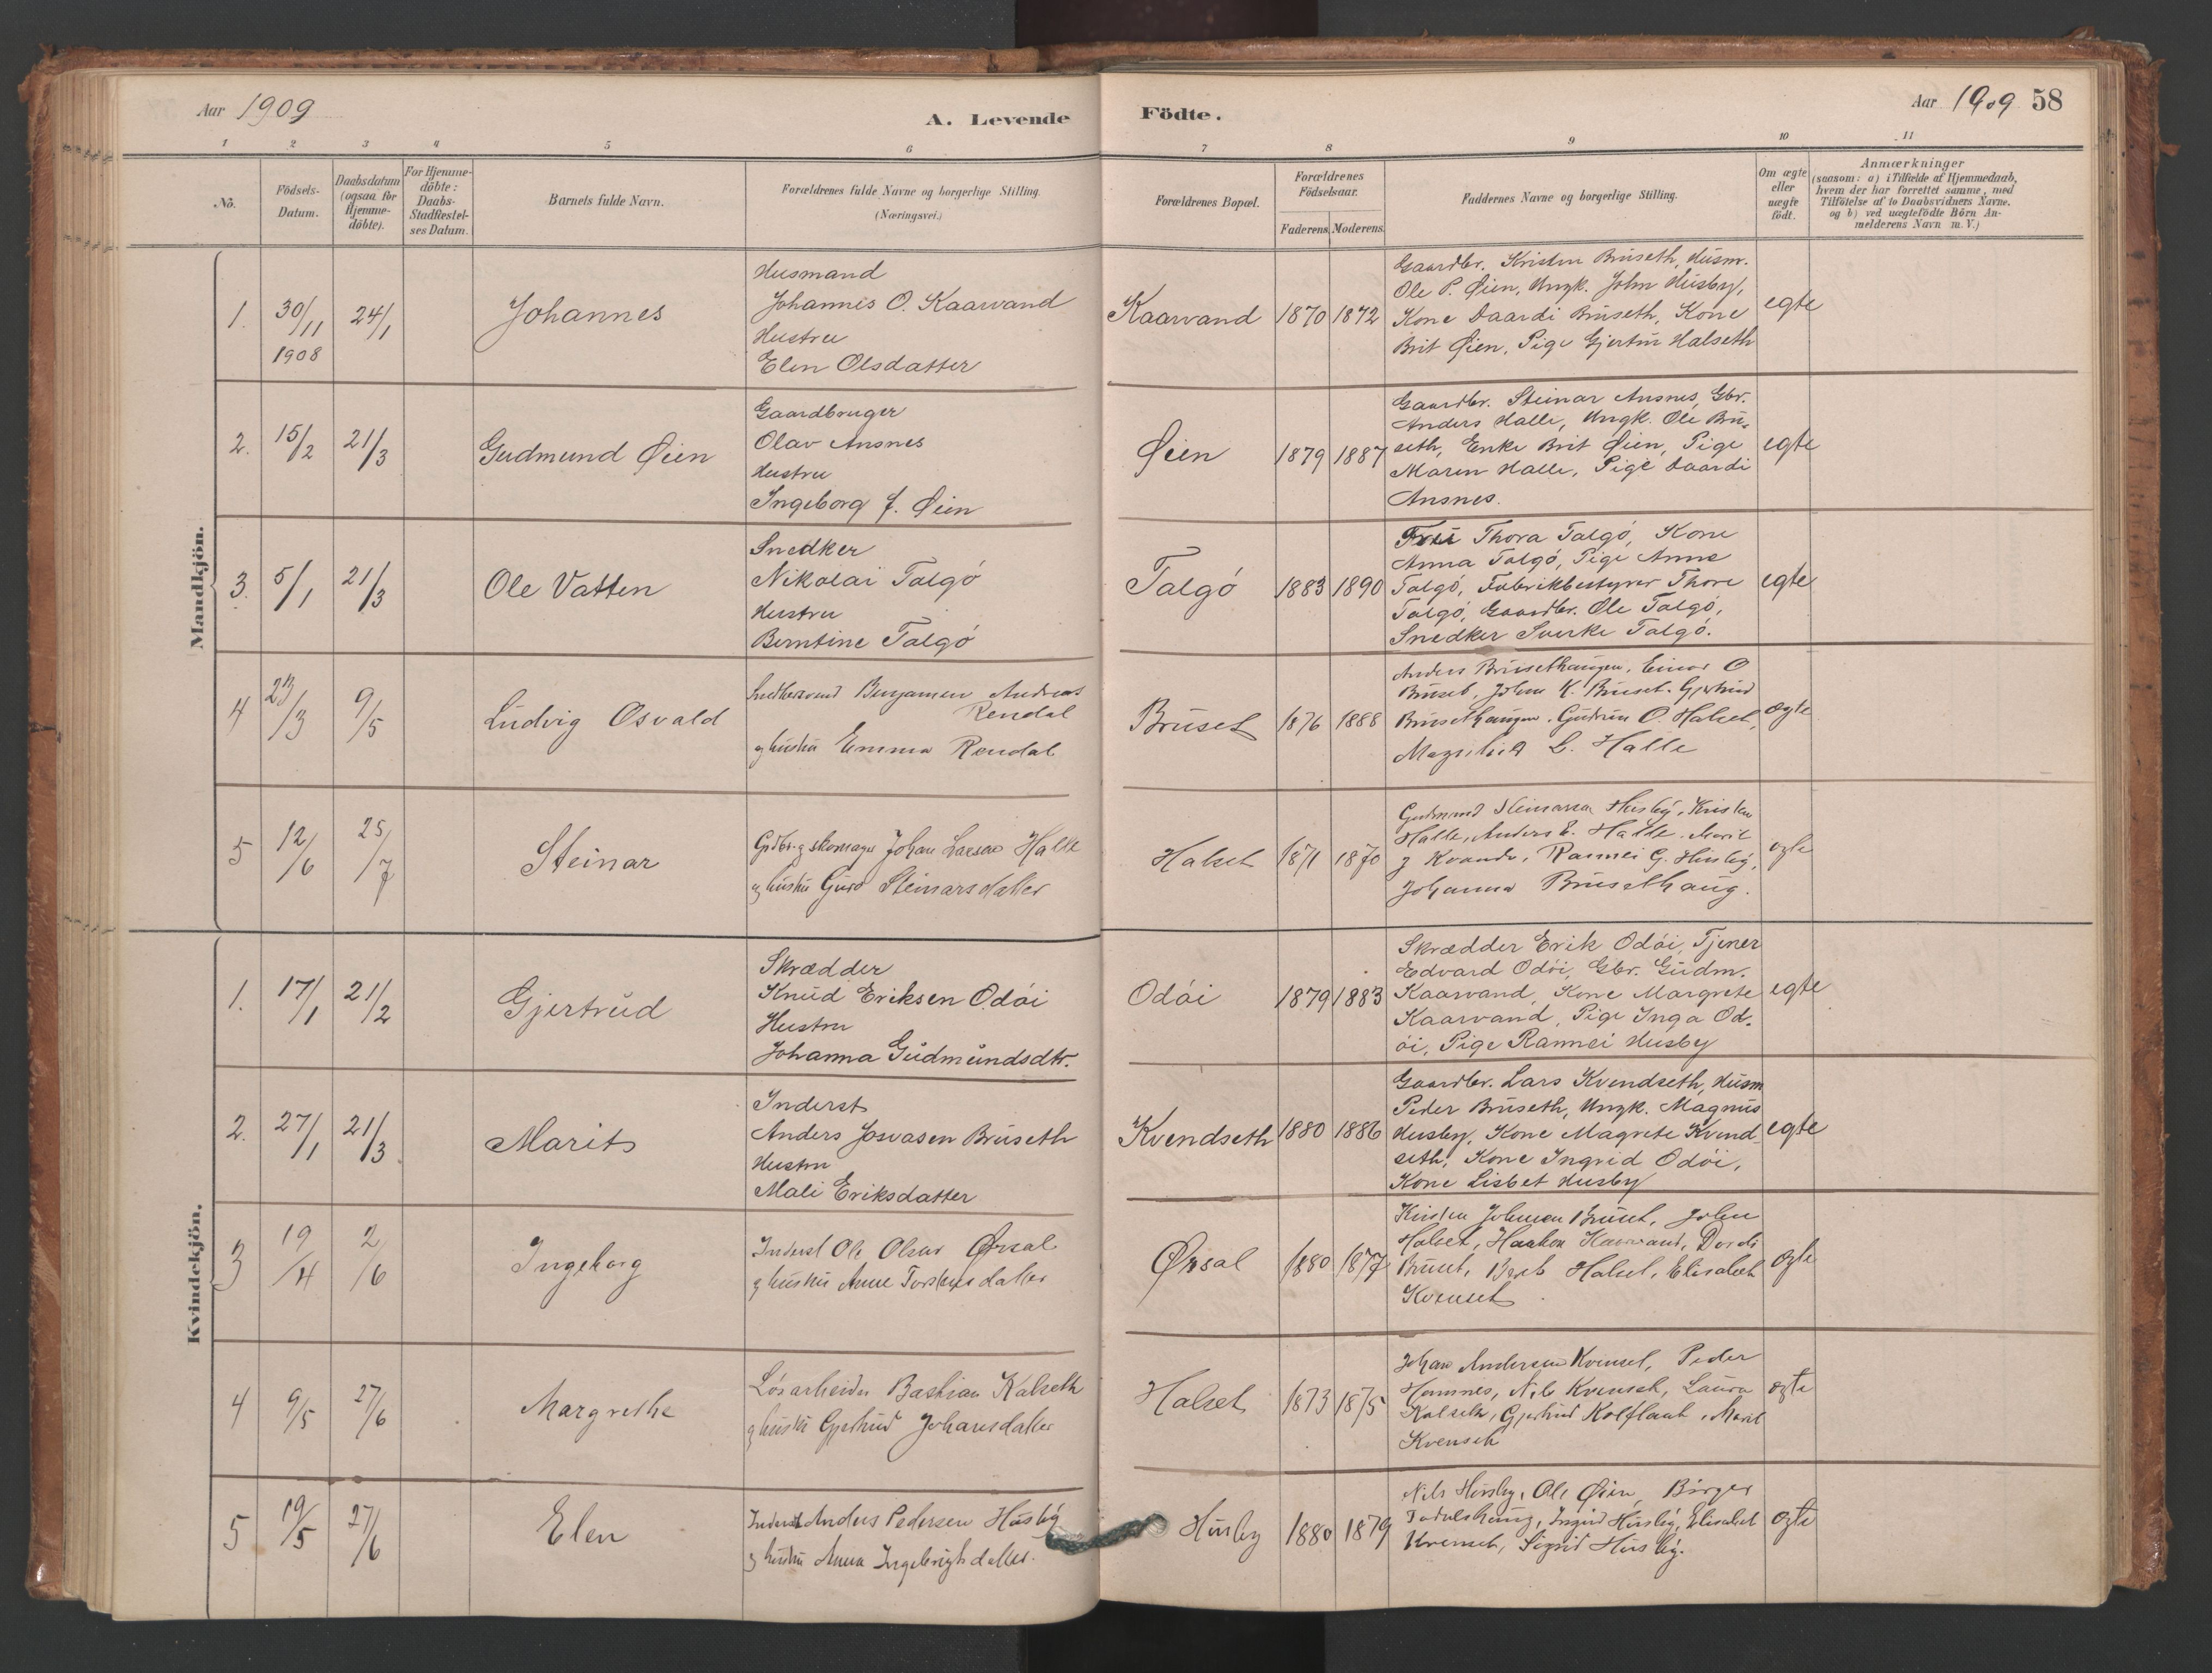 Aar 1909
A. Levende
Födte.
Aar 1909 58
1 2 3 4 5 6 7 8 9 10 11
No.
Födsels-
Datum.
Daabsdatum
(ogsaa for
Hjemme-
döbte).
For Hjemme-
döbte:
Daabs-
Stadfæstel-
ses Datum.
Barnets fulde Navn.
Forældrenes fulde Navne og borgerlige Stilling.
(Næringsvei.)
Forældrenes Bopæl.
Forældrenes
Födselsaar.
Faderens. Moderens.
Faddernes Navne og borgerlige Stilling.
Om ægte
eller
uægte
födt.
Anmærkninger
(saasom: a) i Tilfælde af Hjemmedaab,
hvem der har forrettet samme, med
Tilföielse af to Daabsvidners Navne.
og b) ved uægtefödte Börn An-
melderens Navn m. V.)
Mandkjön.
1. 30/11 1908 24/1 Johannes
Husmand
Johannes O. Kaarvand
Hustru
Elen Olsdatter
Kaarvand 1870 1872
Gaardbr. Kristen Bruseth, Husm.
Ole P. Øien, Ungk. John Husby,
Kone Daardi Bruseth, Kone
Brit Øien, Pige Gjertru Halseth
egte
2. 15/2 21/3 Gudmund Øien
Gaardbruger
Olav Ansnes
Hustru
Ingeborg f. Øien
Øien 1879 1887
Gaardbr. Steinar Ansnes, Gbr.
Anders Halle, Ungk. Ole Bru-
seth, Enke Brit Øien, Pige
Maren Halle, Pige Daardi
Ansnes.
egte
3. 5/1 21/3 Ole Vatten
Snedker
Nikolai Talgö
Hustru
Berntine Talgö
Talgö 1883 1890
Fru Thora Talgö, Kone
Anna Talgö, Pige Anne
Talgö, Fabrikbestyrer Thore
Talgö, Gaardbr. Ole Talgö,
Snedker Sverke Talgö.
egte
4 23/3 9/5 Ludvig Osvald
Benjamen Andreas
Rendal
og hustru Emma Rendal
Bruset 1876 1888
Anders Brusethaugen, Einar O
Bruset, John K. Bruset. Gjertrud
Brusethaugen. Gudrun O. Halset,
Magnhild L. Halle
egte
5 12/6 25/7 Steinar
Grdbr. og skomager Johan Larsen Halle
og hustru Guro Steinarsdatter
Halset 1871 1870
Gudmund Steinarsen Husby, Kristen
Halle, Anders E. Halle. Marit
J Kvande, Rannei G. Husby,
Johanna Brusethaug.
egte
Kvindekjön.
1. 17/1 21/2 Gjertrud
Skrædder
Knud Eriksen Odöi
Hustru
Johanna Gudmundsdtr.
Odöi 1879 1883
Skrædder Erik Odöi, Tjener
Edvard Odöi, Gbr. Gudm.
Kaarvand, Kone Margrete
Kaarvand, Pige Inga Od-
öi, Pige Rannei Husby
egte
2. 27/1 21/3 Marit
Inderst
Anders Josvasen Bruseth
Hustru
Mali Eriksdatter
Kvendseth 1880 1886
Gaardbr. Lars Kvendseth, Husm
Peder Bruseth, Ungk. Magnus
Husby, Kone Magrete Kvend-
seth, Kone Ingrid Odöi,
Kone Lisbet Husby
egte
3 19/4 2/6 Ingeborg
Inderst Ole Olsen Ørsal
og hustru Anne Torstensdatter
Ørsal 1880 1877
Kristen Johnsen Bruset, John
Halset, Haakon Kaarvand, Dordi
Bruset, Berit Halset, Elisabeth
Kvenset
egte
4 9/5 27/6 Margrethe
Lösarbeider Bastian Kalseth
og hustru Gjertrud Johansdatter
Halset 1873 1875
Johan Andersen Kvenset, Peder
Hamnes, Nils Kvenseth, Laura
Kalseth, Gjertrud Kolflaat, Marit
Kvenseth
egte
5 19/5 27/6 Elen
Inderst Anders Pedersen Husby
og hustru Anna Ingebrigtsdatter.
Husby 1880 1879
Nils Husby, Ole Øien, Birger
Ingrid Husby, Elisabet
Kvenseth, Sigrid Husby.
egte